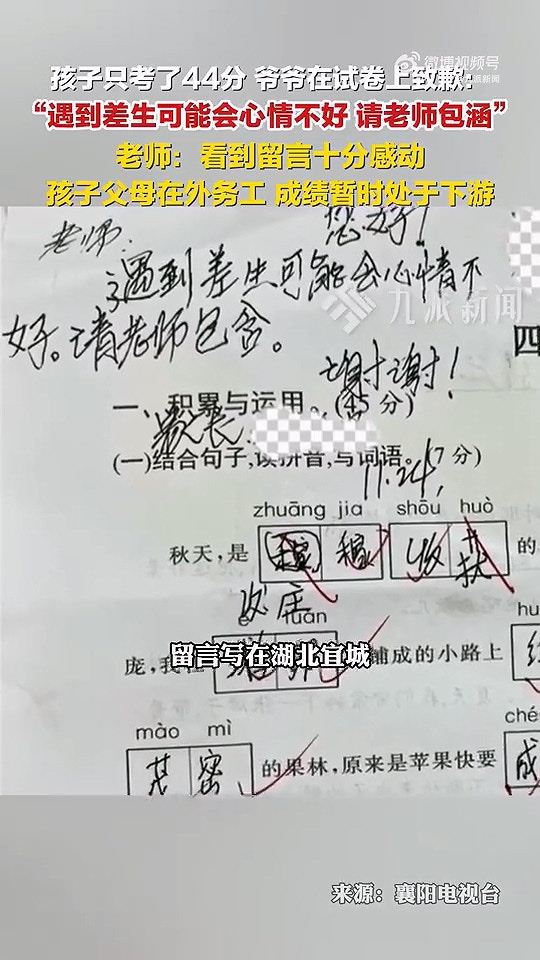 微博视频号
孩子只考了44分 爷爷在试卷上致歉:
“遇到差生可能会心情不好 请老师包涵”
老师：看到留言十分感动
孩子父母在外务工 成绩暂时处于下游
老师: 您好！
遇到差生可能会心情不
好。请老师包含。
九派新闻
谢谢！
四
一、积累与运用。(45分)
家长:
(一)结合句子,读拼音,写词语。(7分)
11.24,
zhuāng jia shōu huò
秋天,是 稼 收 的
庞,我 铺成的小路上
hu
留言写在湖北宜城
mào mì
ché
茂密 的果林,原来是苹果快要 成
来源：襄阳电视台